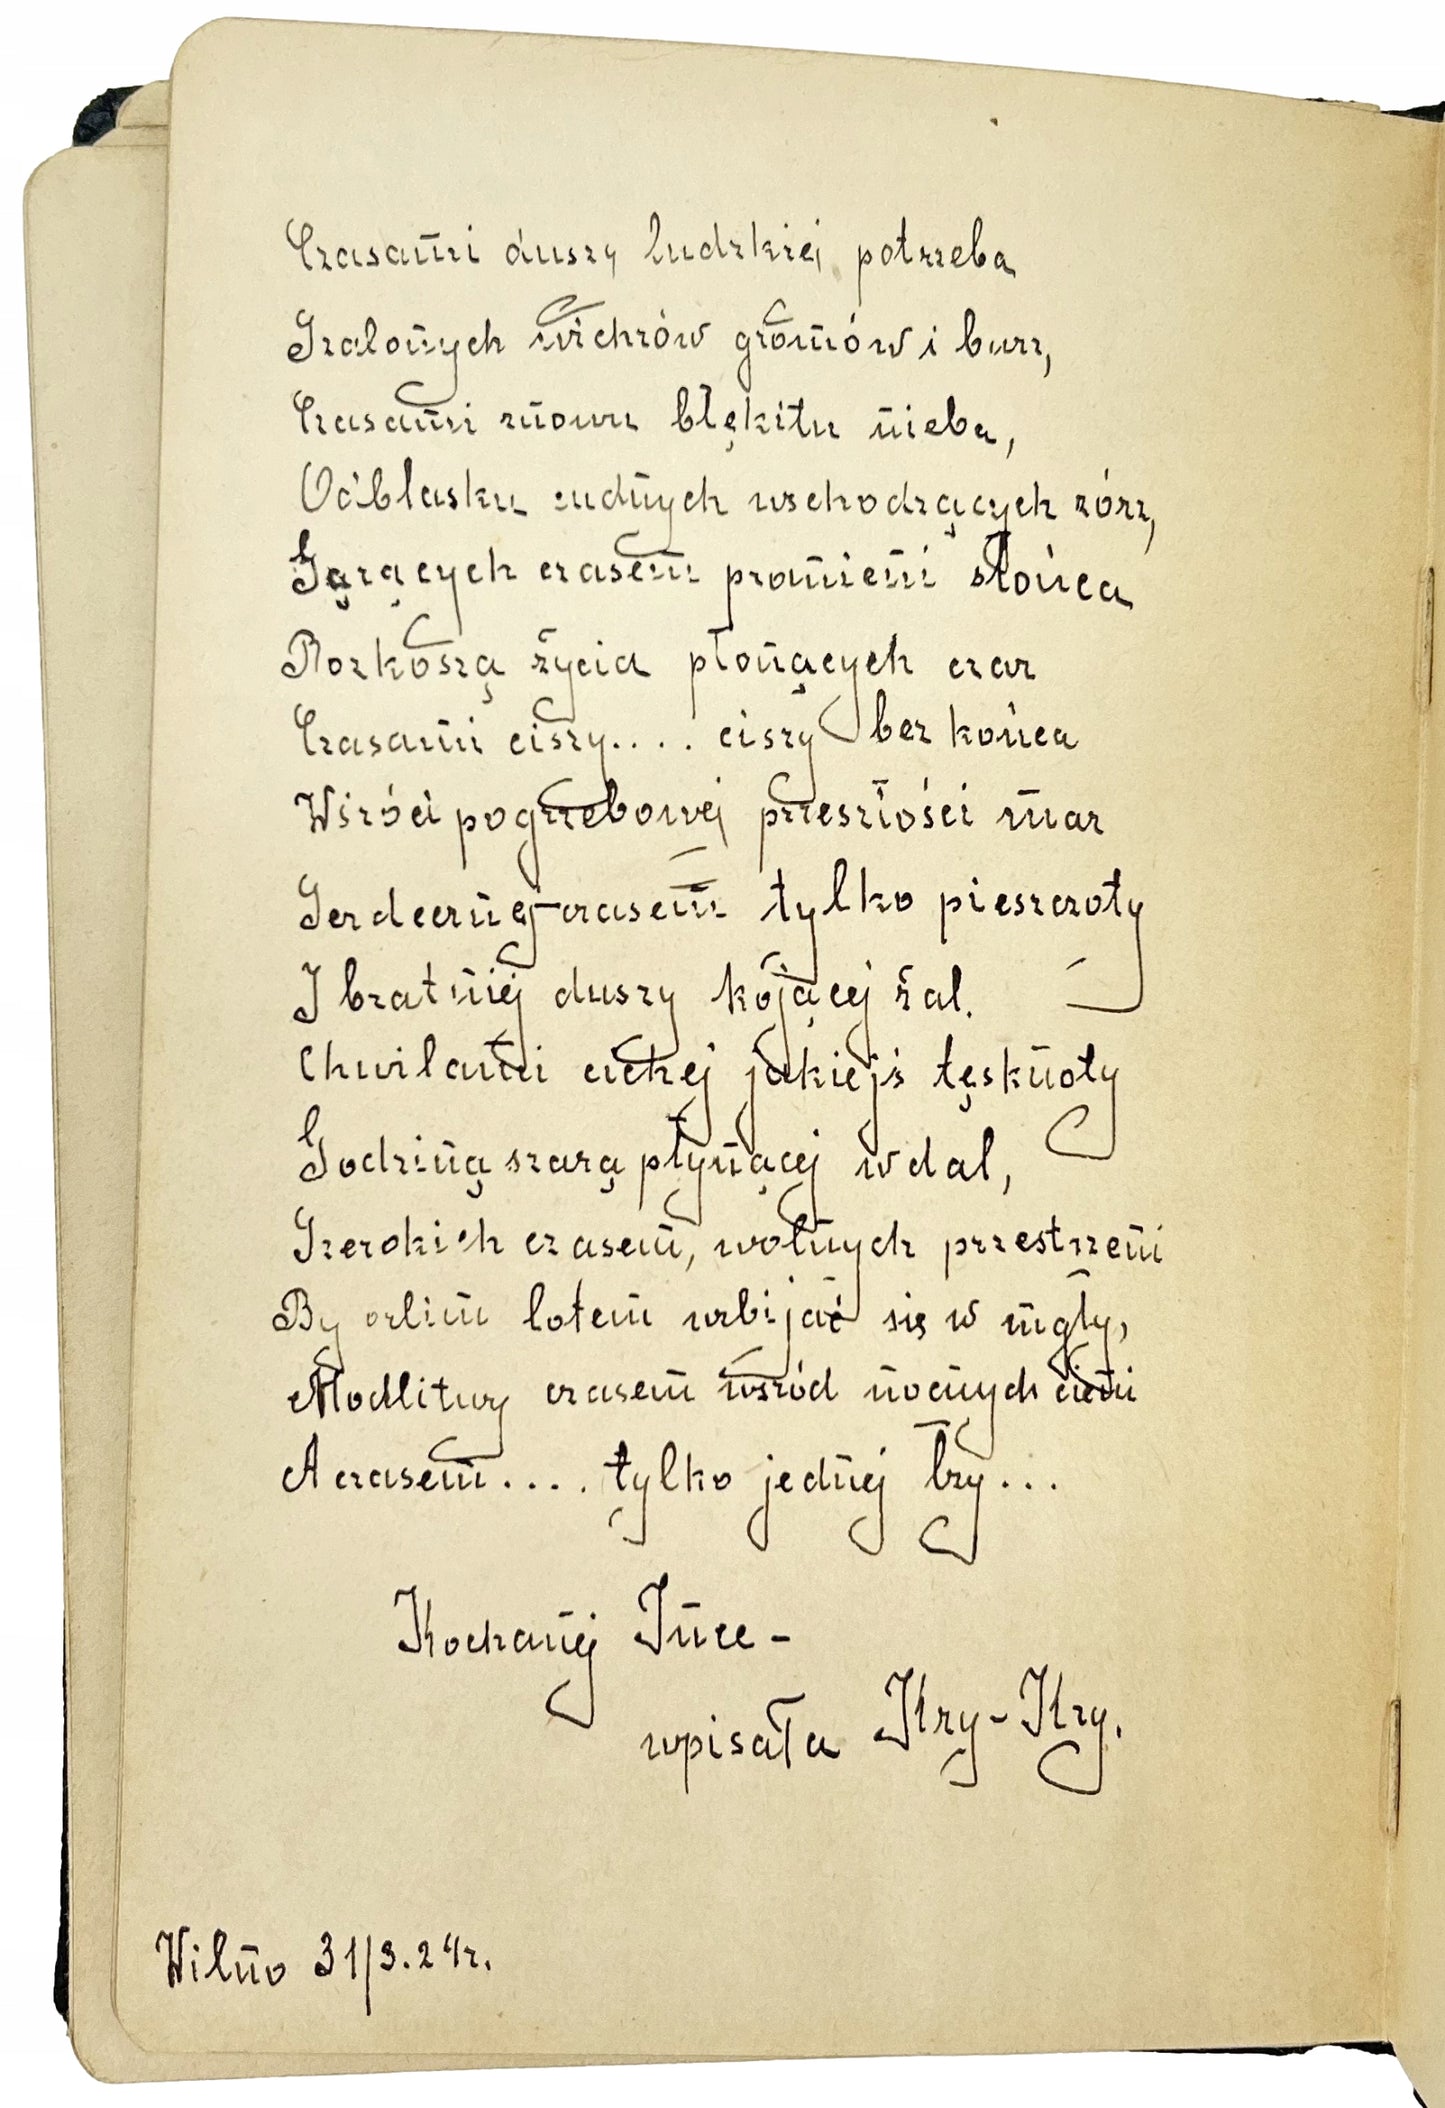 Czasami duszy ludzkiej potrzeba
Szalonych wichrów gromów i burz,
Czasami znowu błękitu nieba,
Odblasku cudnych wschodzących zórz,
Gorących czasem promieni słońca
Rozkoszą życia płonących czar
Czasami ciszy.... ciszy bez końca
Wśród pogrzebowej przeszłości mar
Serdecznej czasem tylko pieszczoty
I bratniej duszy kojącej żal.
Chwilami cichej jakiejś tęsknoty
Godziną szarą płynącej w dal,
Szerokich czasem, wolnych przestrzeni
By orlim lotem wzbijać się w mgły,
Modlitwy czasem wśród nocnych cieni
A czasem.... tylko jednej łzy...
Kochanej Ince -
wpisała Kry-Kry.
Wilno 31/3.24r.